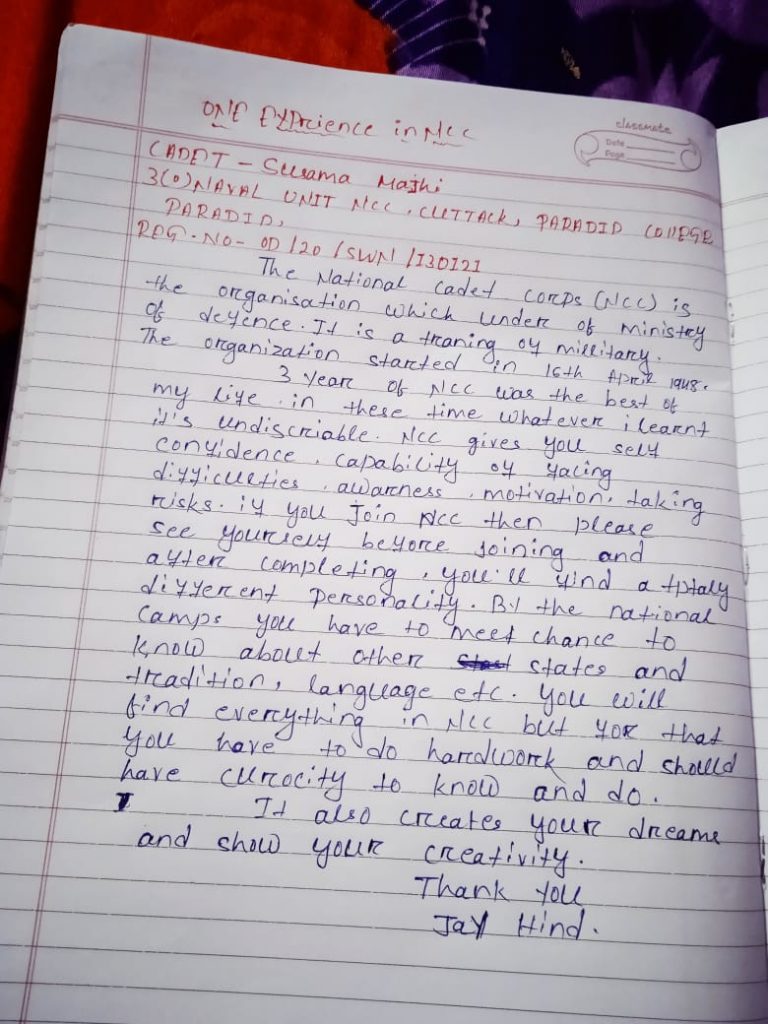 ONE EXPrcience in Ncc
classmate
Date
Page
CADET - Susama Majhi
3(O) NAVAL UNIT NCC, CUTTACK, PARADIP COLLEGE
PARADIP,
REG. NO- OD/20/SWN/130121
The National cadet corps (NCC) is
the organisation which under of ministry
of defence. It is a traning of military.
The organization started in 16th April 1948.
3 year of NCC was the best of
my life. in these time whatever i learnt
it's undiscriable. NCC gives you self
confidence, capability of facing
difficulties, awarness, motivation, taking
risks. if you Join NCC then please
see yourself before Joining and
after completing, you'll find a totaly
different personality. By the national
camps you have to meet chance to
know about other states and
tradition, language etc. You will
find everything in NCC but for that
you have to do hardwork and should
have curocity to know and do.
It also creates your dreams
and show your creativity.
Thank You
Jay Hind.